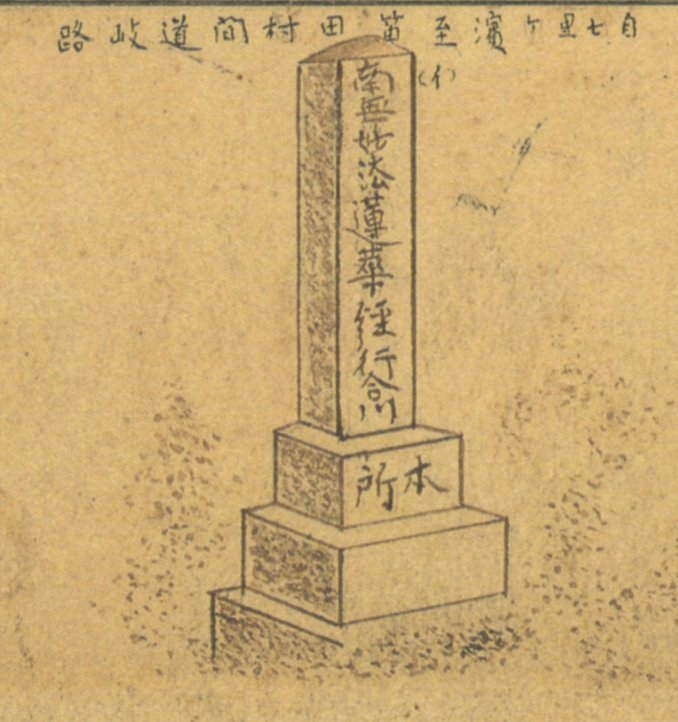 自七里ケ濱至笛田村間道岐路
(イ)
南無妙法蓮華經行合川
本所